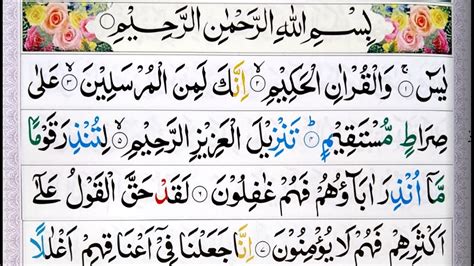 بِسْمِ اللهِ الرَّحْمٰنِ الرَّحِيْمِ
يٰسٓ ۝١ وَالْقُرْاٰنِ الْحَكِيْمِ ۝٢ اِنَّكَ لَمِنَ الْمُرْسَلِيْنَ ۝٣ عَلٰى
صِرَاطٍ مُّسْتَقِيْمٍ ۝٤ تَنْزِيْلَ الْعَزِيْزِ الرَّحِيْمِ ۝٥ لِتُنْذِرَ قَوْمًا
مَّاۤ اُنْذِرَ اٰبَآؤُهُمْ فَهُمْ غٰفِلُوْنَ ۝٦ لَقَدْ حَقَّ الْقَوْلُ عَلٰٓى
اَكْثَرِهِمْ فَهُمْ لَا يُؤْمِنُوْنَ ۝٧ اِنَّا جَعَلْنَا فِيْۤ اَعْنَاقِهِمْ اَغْلٰلًا